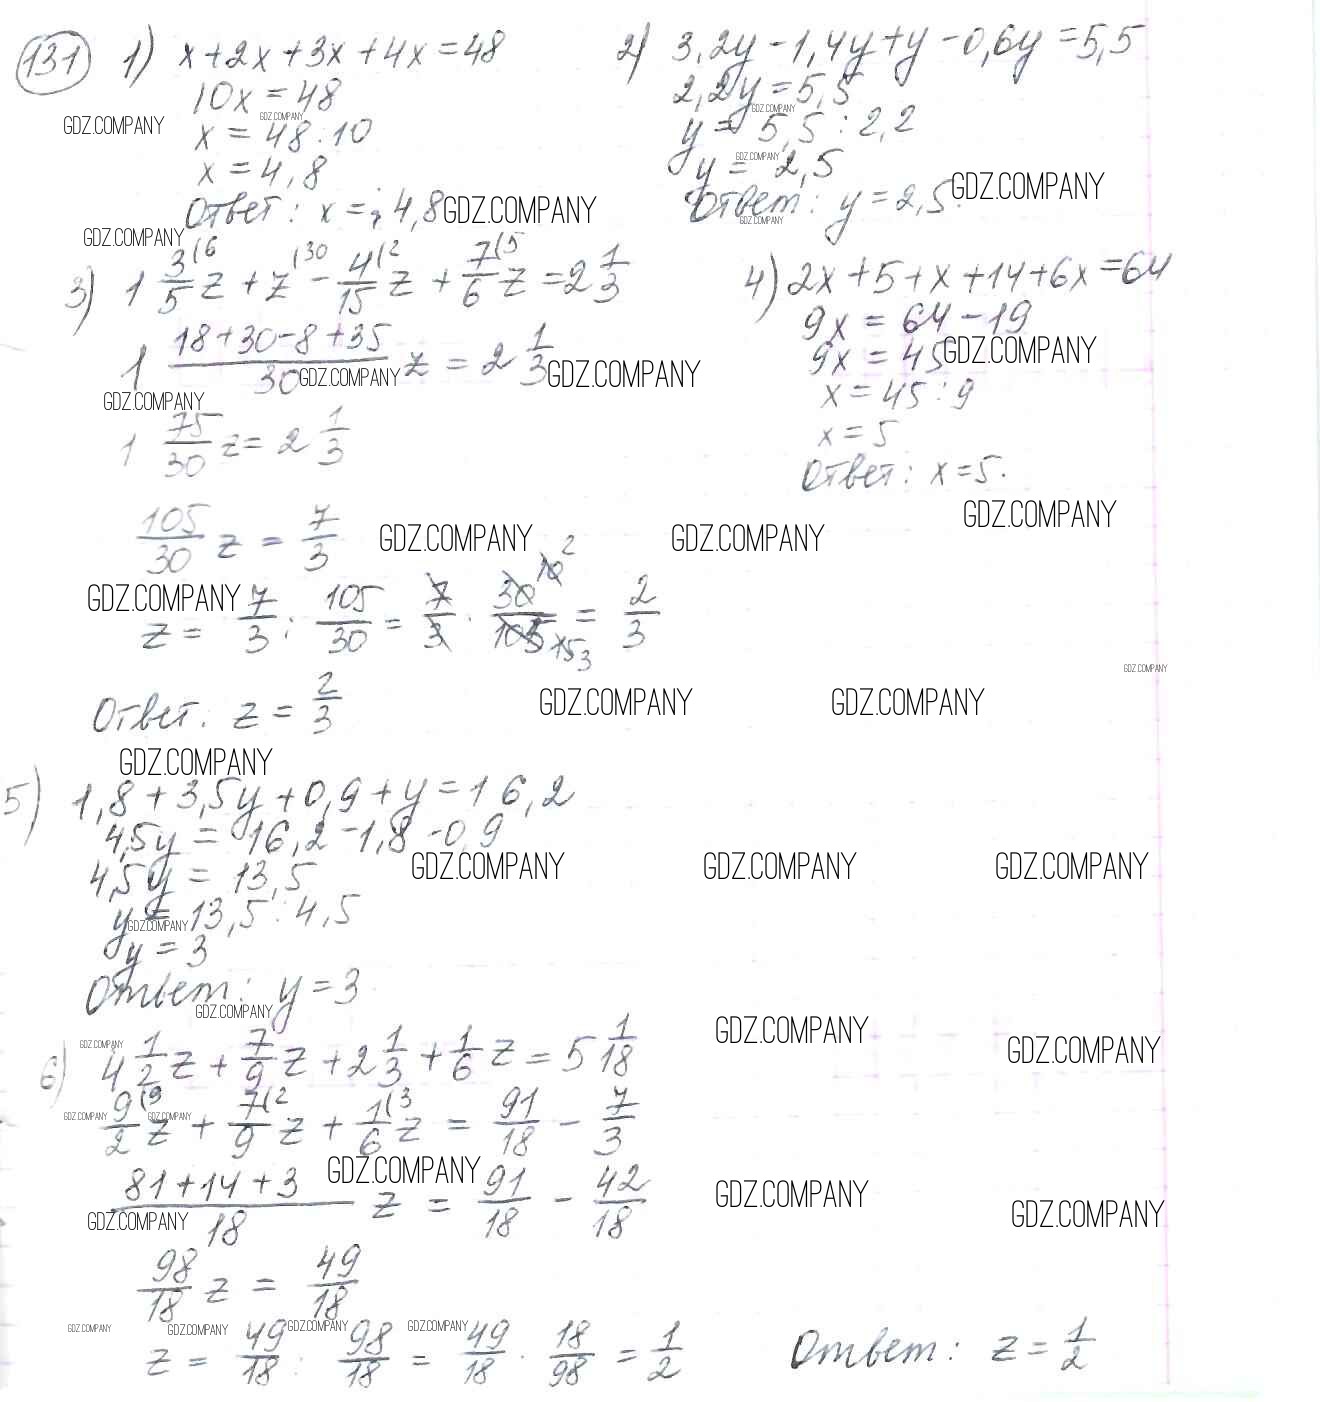 131 1) x+2x+3x+4x=48
10x=48
x=48:10
x=4,8
Ответ: x=4,8
2) 3,2y-1,4y+y-0,6y=5,5
2,2y=5,5
y=5,5:2,2
y=2,5
Ответ: y=2,5.
3) 1 3/5(6 z + z(30 - 4/15(2 z + 7/6(5 z = 2 1/3
1 (18+30-8+35)/30 z = 2 1/3
1 75/30 z = 2 1/3
105/30 z = 7/3
z = 7/3 : 105/30 = 7/3 · 30/105 10 2 15 3 = 2/3
Ответ: z = 2/3
4) 2x+5+x+14+6x=64
9x=64-19
9x=45
x=45:9
x=5
Ответ: x=5.
5) 1,8+3,5y+0,9+y=16,2
4,5y=16,2-1,8-0,9
4,5y=13,5
y=13,5:4,5
y=3
Ответ: y=3
6) 4 1/2 z + 7/9 z + 2 1/3 + 1/6 z = 5 1/18
9/2(9 z + 7/9(2 z + 1/6(3 z = 91/18 - 7/3
(81+14+3)/18 z = 91/18 - 42/18
98/18 z = 49/18
z = 49/18 : 98/18 = 49/18 · 18/98 = 1/2
Ответ: z = 1/2
GDZ.COMPANY